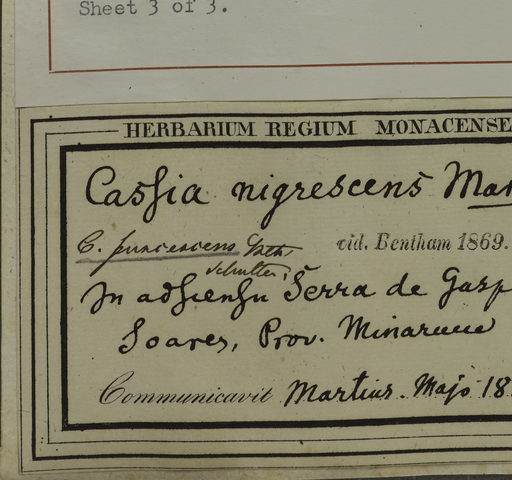 Sheet 3 of 3.
HERBARIUM REGIUM MONACENSE
Cassia nigrescens Mar
C.
vid. Bentham 1869.
In adscensu Serra de Gasp
Soares, Prov. Minarum
Communicavit Martius. Majo 18